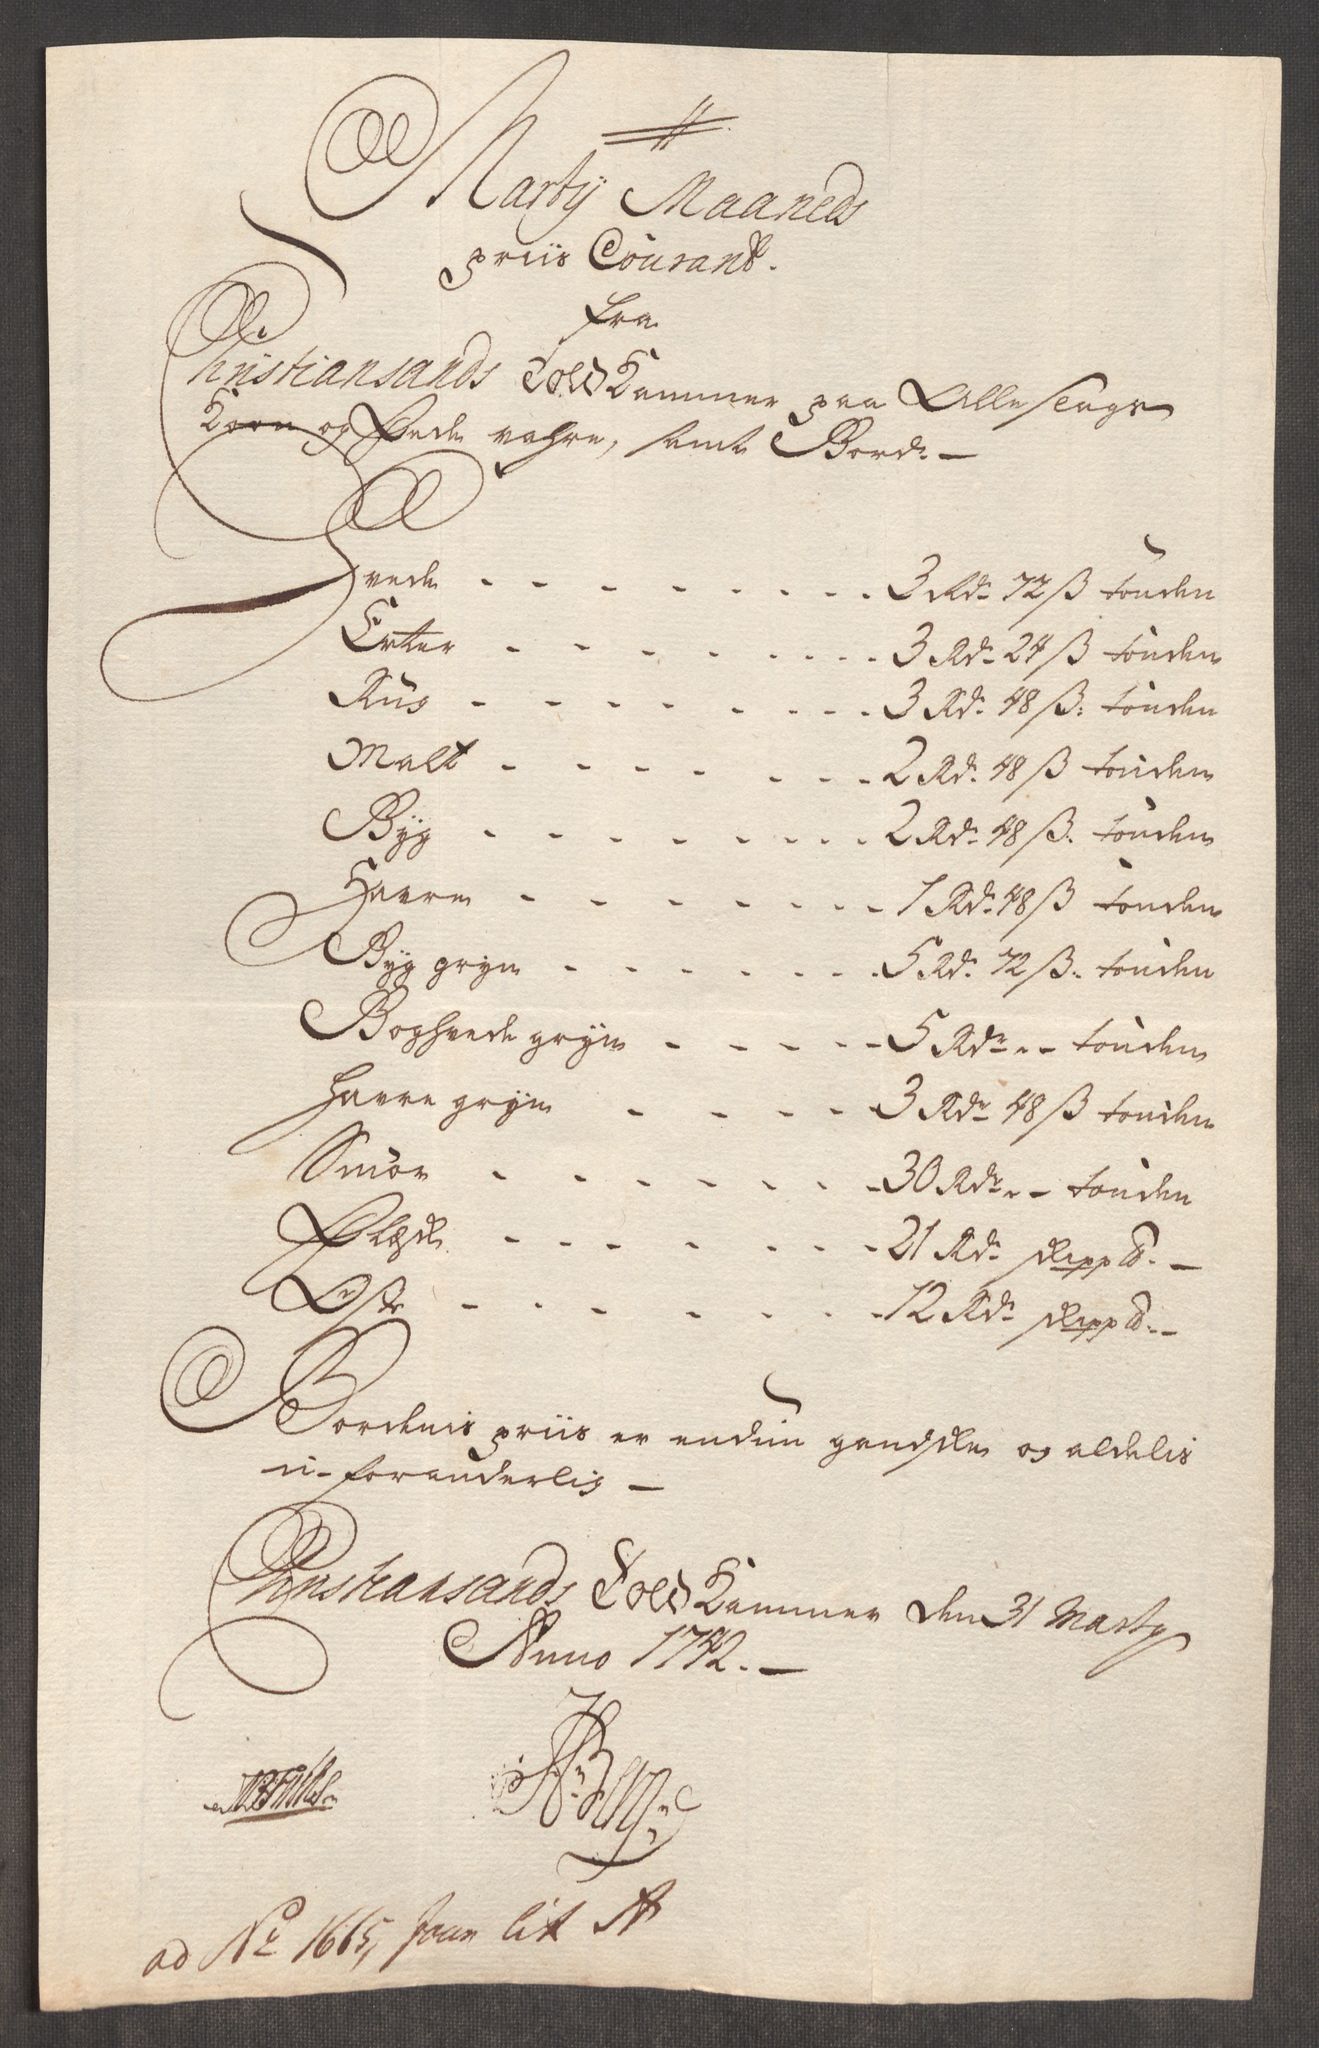 Martij Maaneds
priis Courant.
fra
Christiansands Told Kammer paa Alle slags
Korn og Fede vahre, samt Bord. —
Hvede - - - - - - - - 3 Rdr 72 ß tønden
Erter - - - - - - - - 3 Rdr 24 ß tønden
Rug - - - - - - - - 3 Rdr 48 ß: tønden
Malt - - - - - - - 2 Rdr 48 ß tønden
Byg - - - - - - - - 2 Rdr 48 ß. tønden
Havre - - - - - - - - 1 Rdr 48 ß tønden
Byg gryn - - - - - - - 5 Rdr 72 ß. tønden
Boghvede gryn - - - - - 5 Rdr - - tønden
Havre gryn - - - - - 3 Rdr 48 ß tønden
Smør - - - - - - - - 30 Rdr - - tønden
Flesk - - - - - - - 21 Rdr skipp ℔. —
Oste - - - - - - - 12 Rdr skipp ℔. —
Bordenis priis er endnu gandske og aldelis
u-foranderlig —
Christiansands Told Kammer den 31 Martij
Anno 1742. —
ad No 1665, Joun lit A